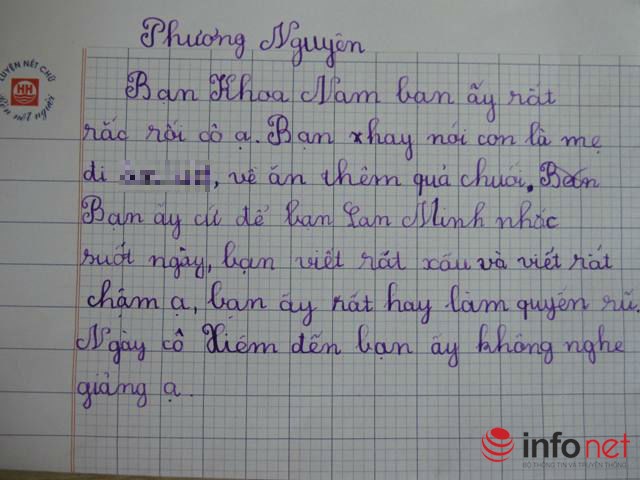 Phương Nguyên
LUYỆN NÉT CHỮ
HH
Rèn nết người
Bạn Khoa Nam bạn ấy rất
rắc rối cô ạ. Bạn hay nói con là mẹ
đi , về ăn thêm quả chuối.
Bạn ấy cứ để bạn Lan Minh nhắc
suốt ngày, bạn viết rất xấu và viết rất
chậm ạ, bạn ấy rất hay làm quyển rũ.
Ngày cô Xiêm đến bạn ấy không nghe
giảng ạ.
infonet
BỘ THÔNG TIN VÀ TRUYỀN THÔNG